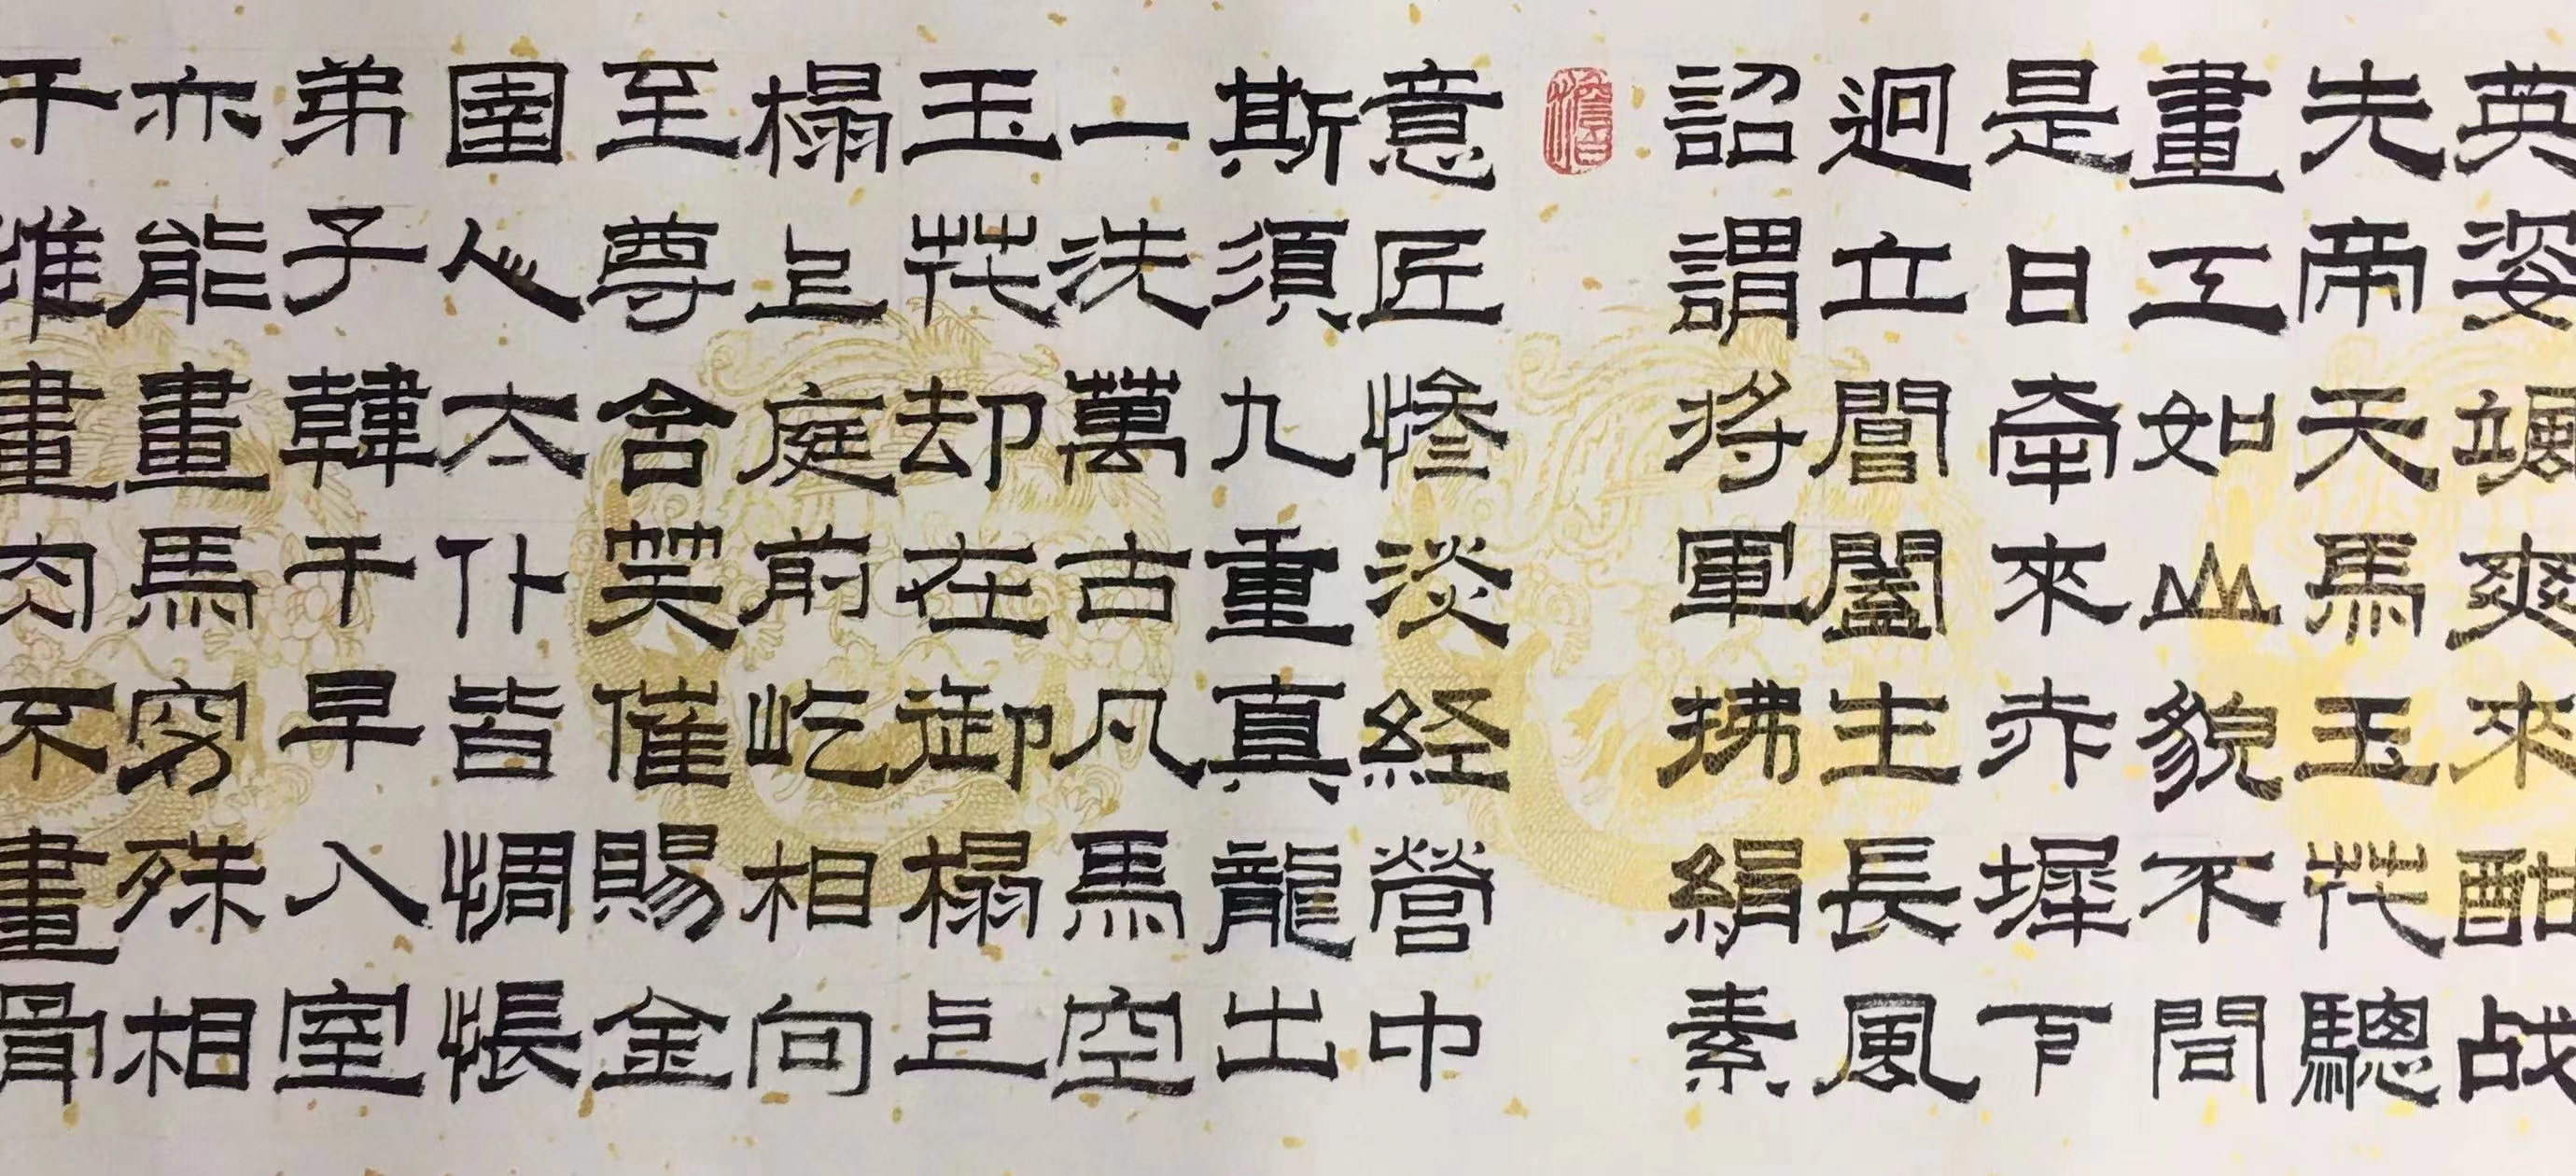 英姿颯爽來酣战
先帝天馬玉花驄
畫工如山貌不同
是日牽來赤墀下
迥立閶闔生長風
詔謂將軍拂絹素
意匠慘淡経營中
斯須九重真龍出
一洗萬古凡馬空
玉花却在御榻上
榻上庭前屹相向
至尊含笑催賜金
圉人太仆皆惆悵
弟子韓干早入室
亦能畫馬穷殊相
干惟畫肉不畫骨